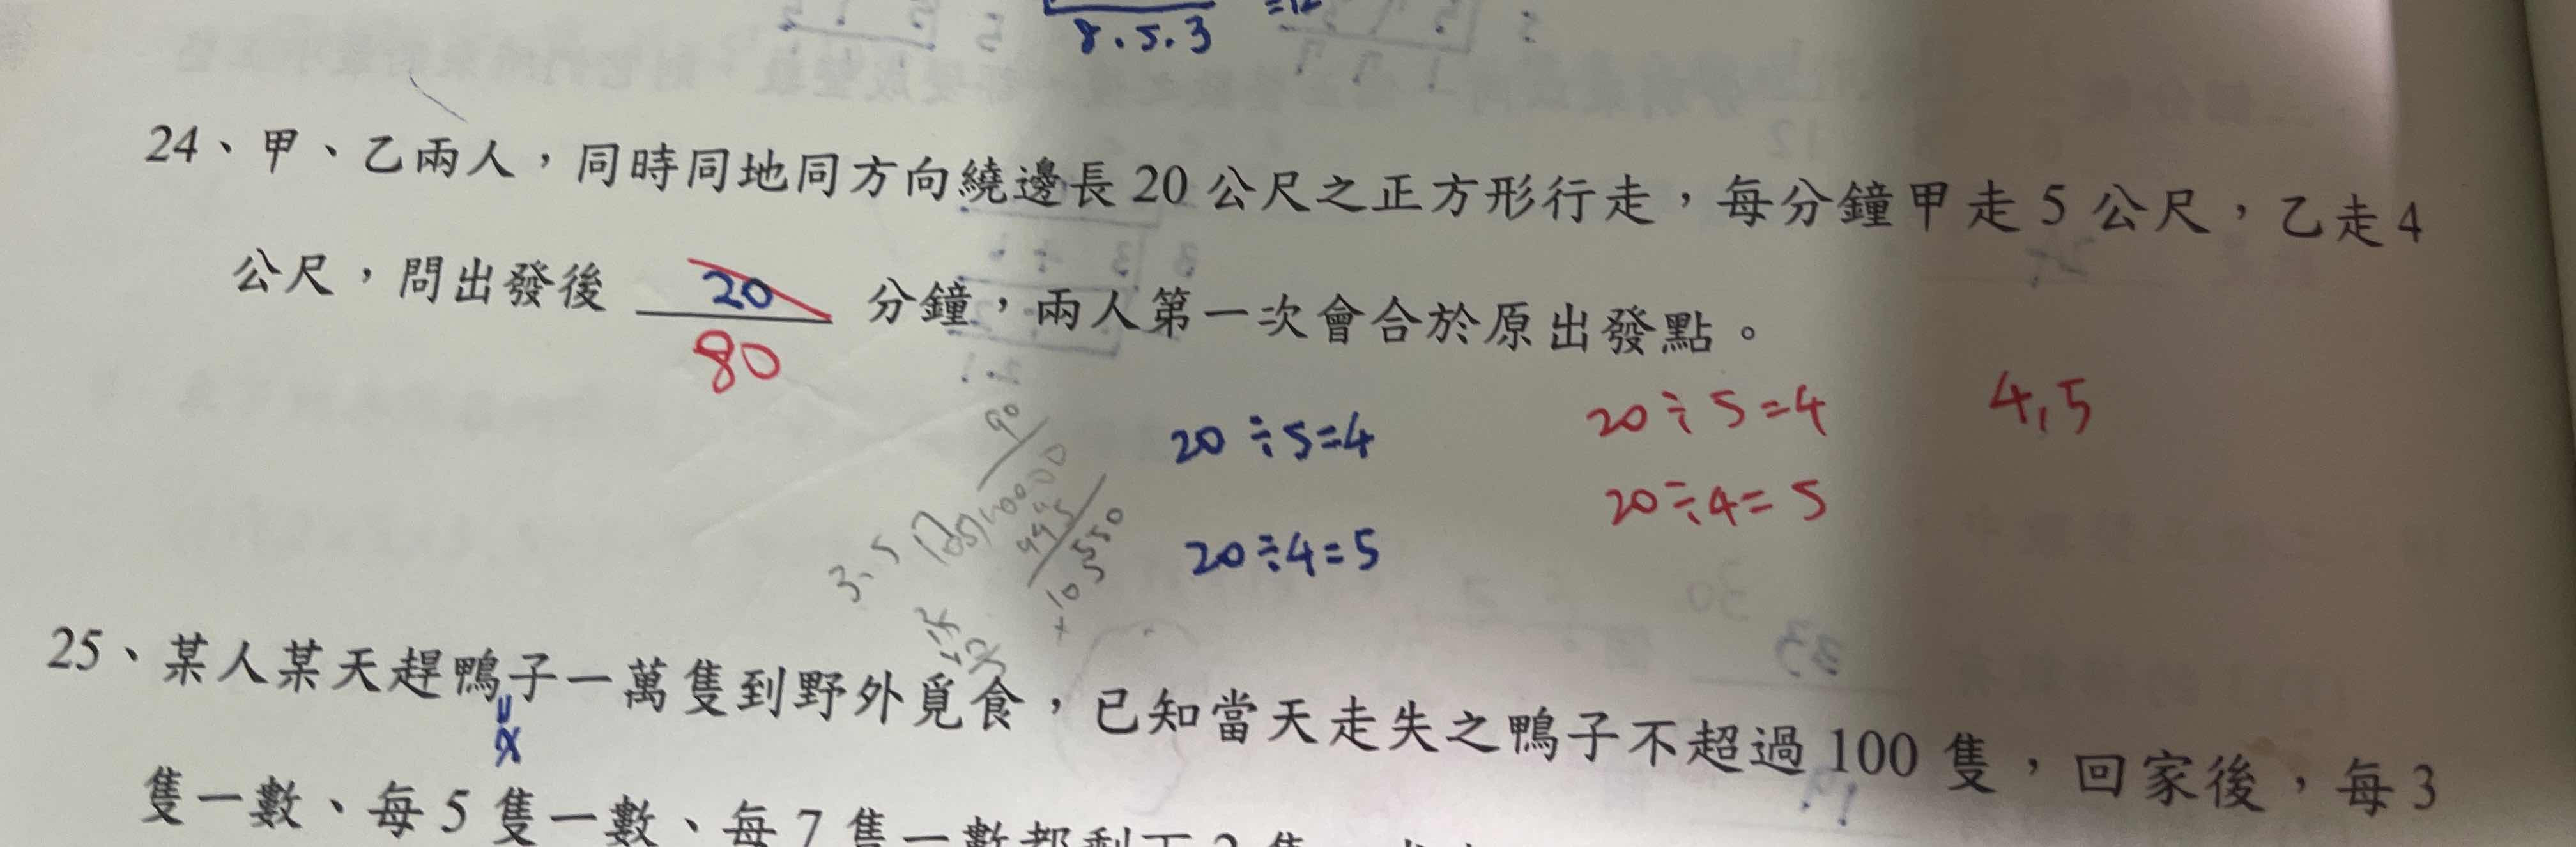 8.5.3
24、甲、乙兩人，同時同地同方向繞邊長 20 公尺之正方形行走，每分鐘甲走 5 公尺，乙走 4
公尺，問出發後 20 分鐘，兩人第一次會合於原出發點。
80
20÷5=4
20÷4=5
20÷5=4
20÷4=5
4,5
25、某人某天趕鴨子一萬隻到野外覓食，已知當天走失之鴨子不超過 100 隻，回家後，每 3
隻一數、每 5 隻一數、每 7 隻一數都剩下 2 隻